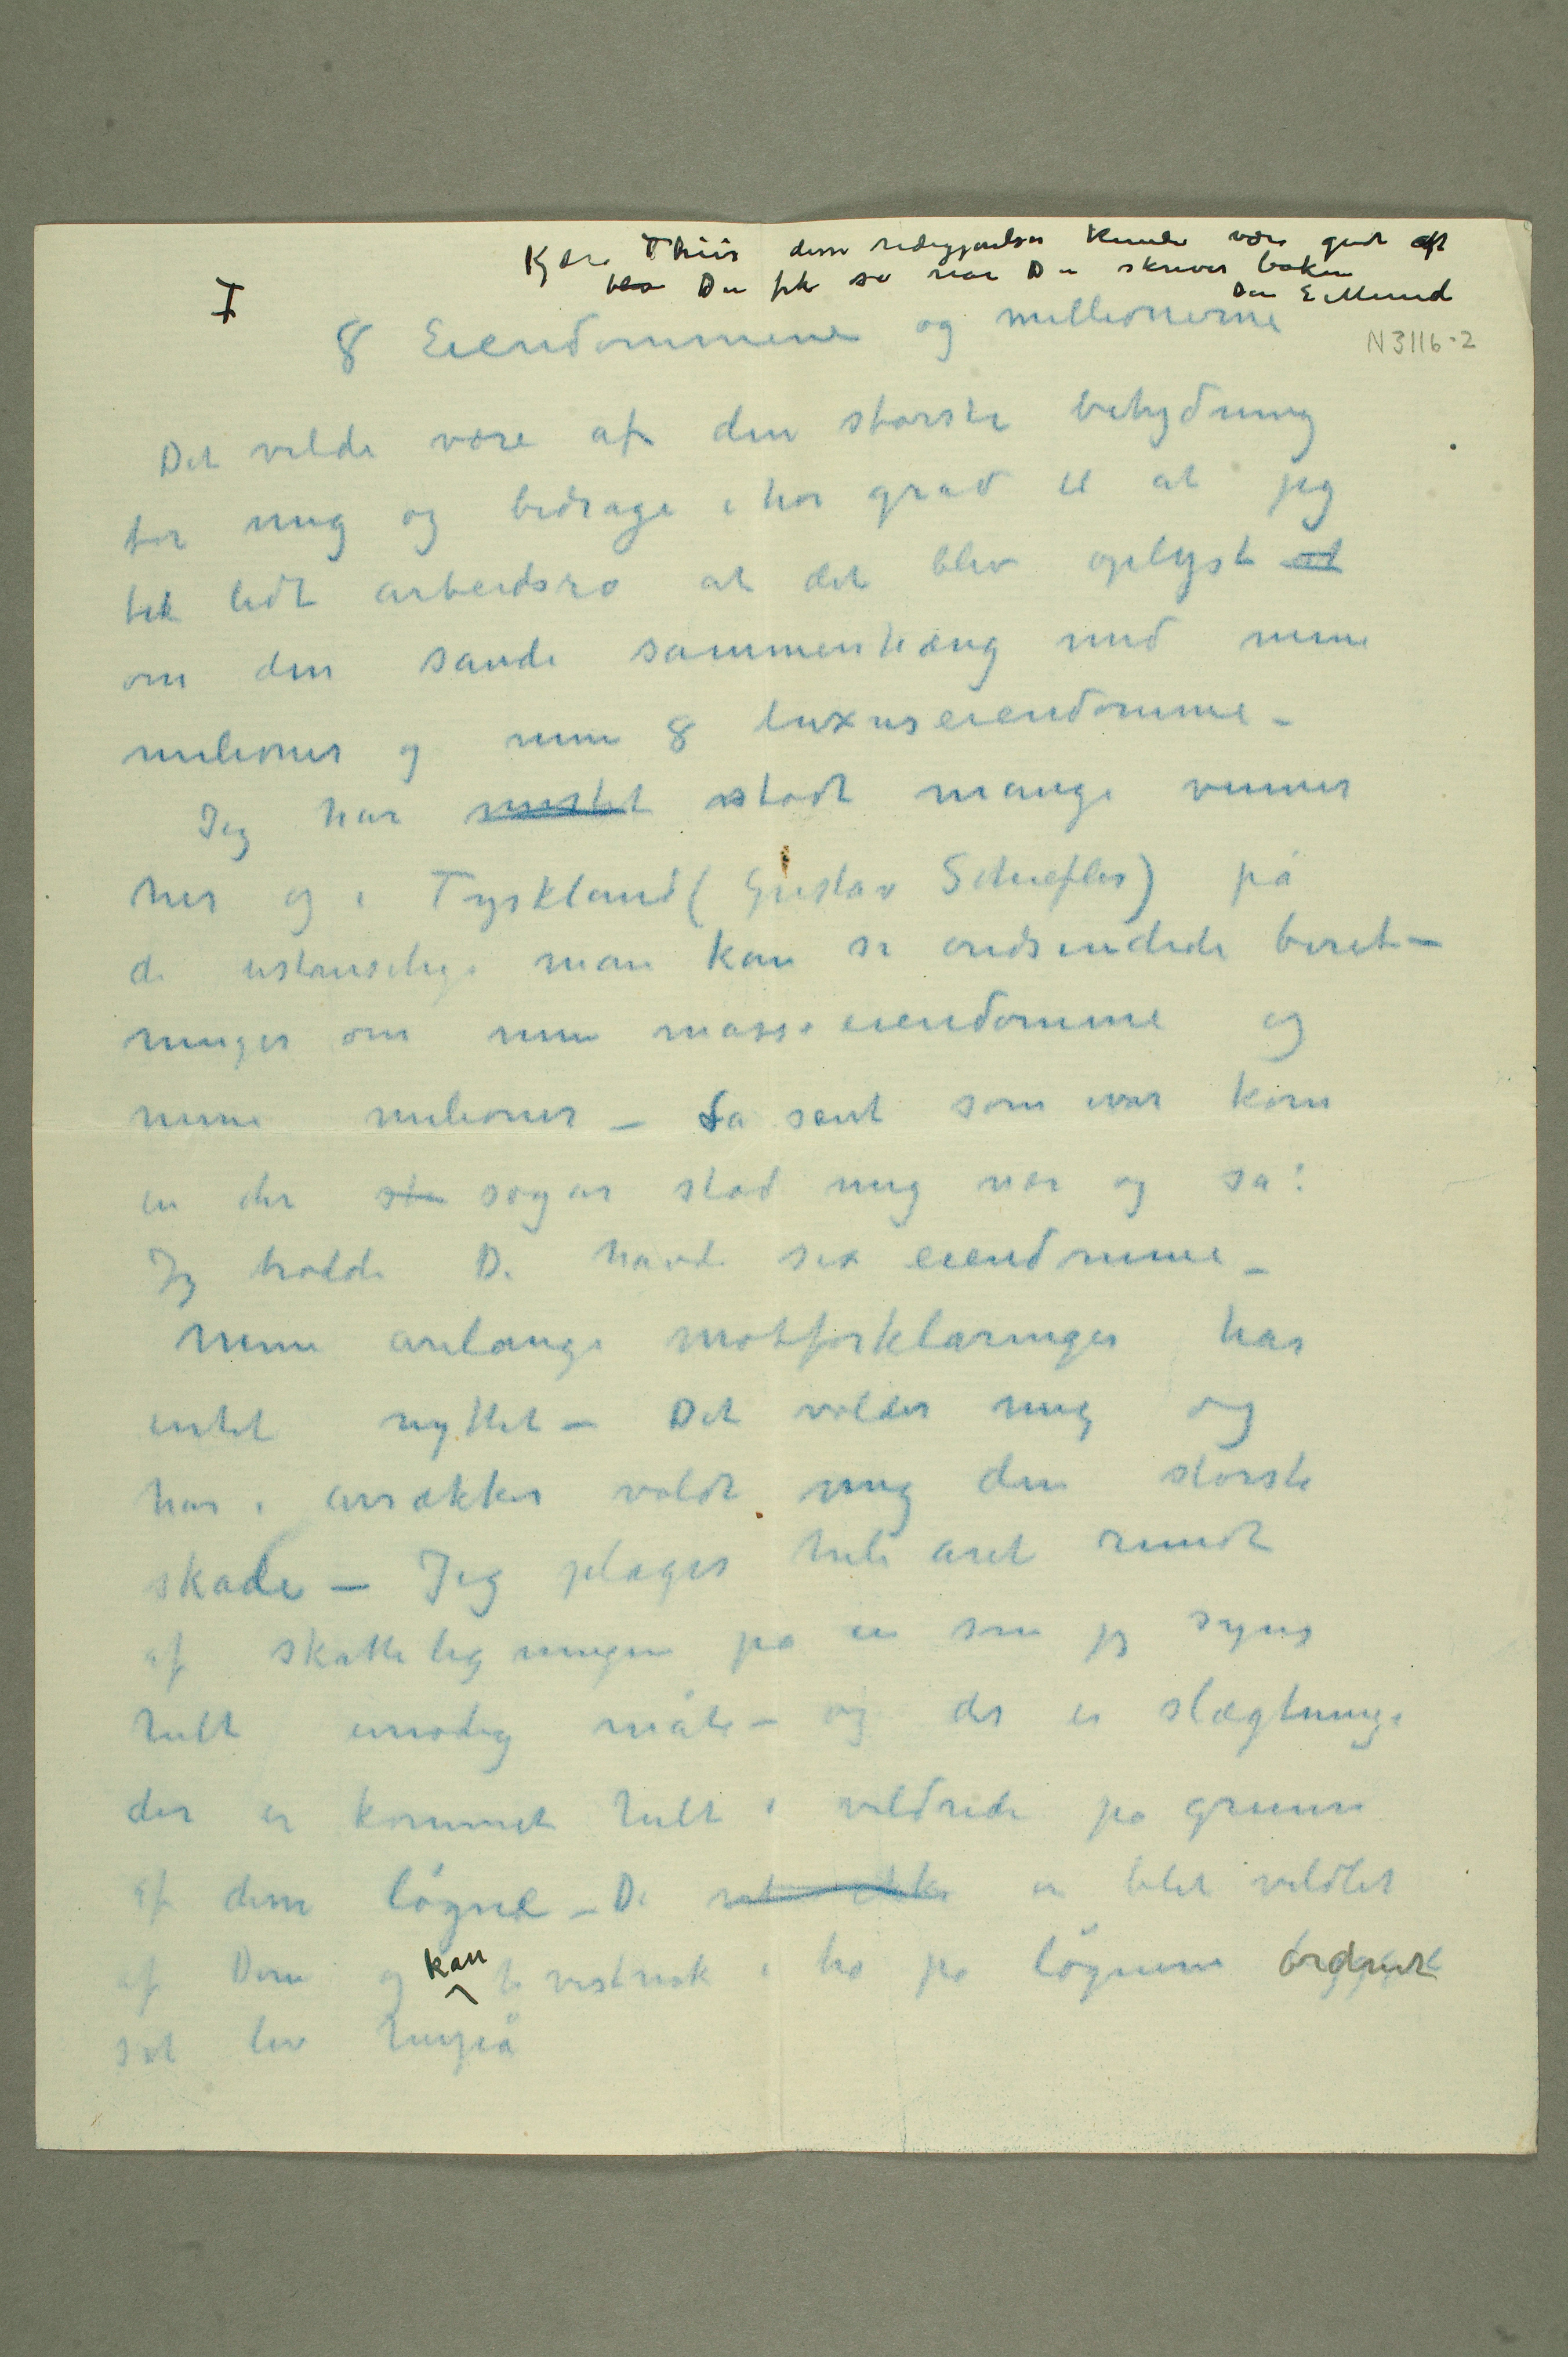 Kjære Thiis denne redegjørelse kunde være godt at
Du fik se når Du skriver boken
Din E Munch
I
8 Eiendommene og millionerne
N 3116-2
Det vilde være af den største betydning
for mig og bidrage i høi grad til at jeg
fik lidt arbeidsro at det blev oplyst at
om den sande sammenhæng med mine
milioner og mine 8 luxuseiendomme –
Jeg har mistet stødt mange venner
her og i Tyskland (Gustav Schiefler) på
de ustanselige man kan si åndsendede beret–
ninger om mine masse eiendomme og
mine milioner – Så sent som iår kom
en der sto sogar stod mig nær og sa:
Jeg trodde De havde sex eiendomme –
Mine årelange motforklaringer har
intet nyttet – Det volder mig og
har i årrækker voldt mig den største
skade – Jeg plages hele året rundt
af skatteligningen på en som jeg synes
helt unødig måte – og der er slægtninge
der er kommet helt i vildrede på grunn
af denne løgne – De er blet vildlet
af Dem og kan i tro på løgnene ordnet
sit liv